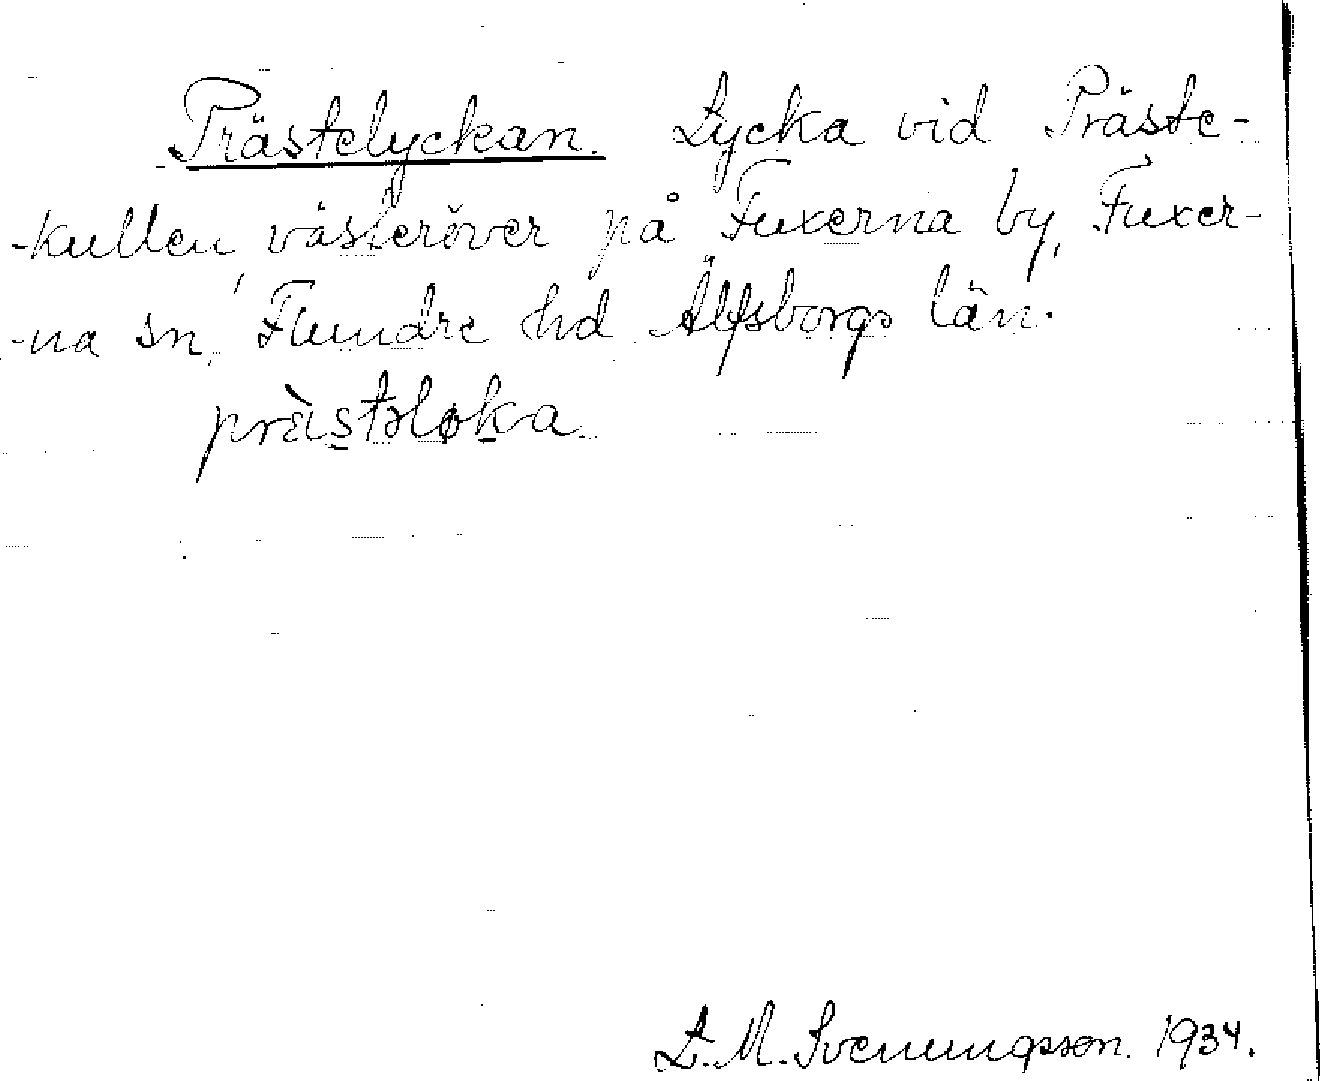 Prästelyckan. Lycka vid Präste-
-kullen västeröver på Fuxerna by, Fuxer-
-na sn, Flundre hd Älfsborgs län.
prä̀stəløka
L. M. Svenungsson. 1934.